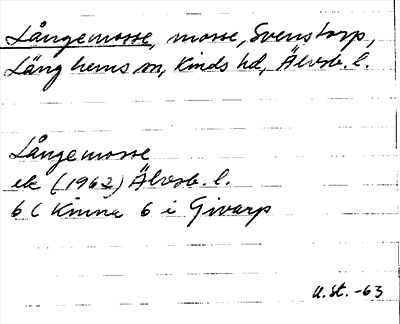 Långemosse, mosse, Svenstorp,
Länghems sn, Kinds hd, Älvsb. l.
Långemosse
ek (1962) Älvsb. l.
6 C Kinna 6 i Givarp
U. St. -63